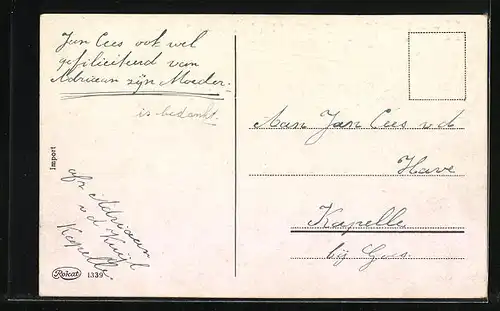 Jan Cees ook wel
gefiliciteerd van
Adriaan zijn Moeder.
is bedankt.
Import
afz Adriaan
v d Kuijl
Kapelle.
Rokat 1339
Aan Jan Cees v d
Have
Kapelle
bij Goes.